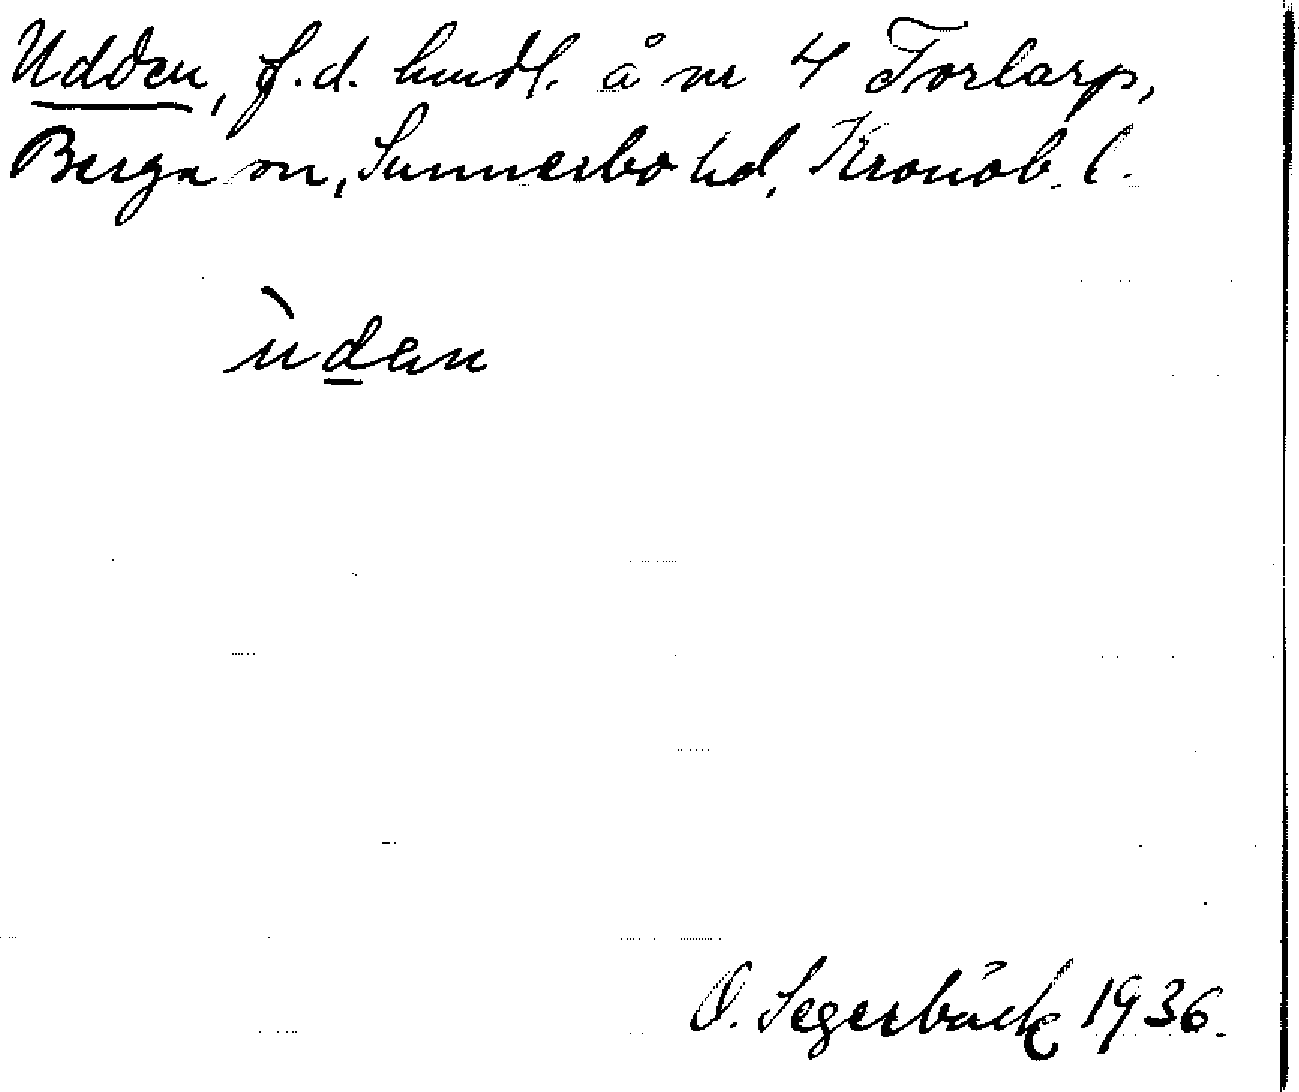 Udden, f.d. hmdl. å nr 4 Torlarp,
Berga sn, Sunnerbo hd, Kronob. l.
ùden
O. Segerbäck 1936.